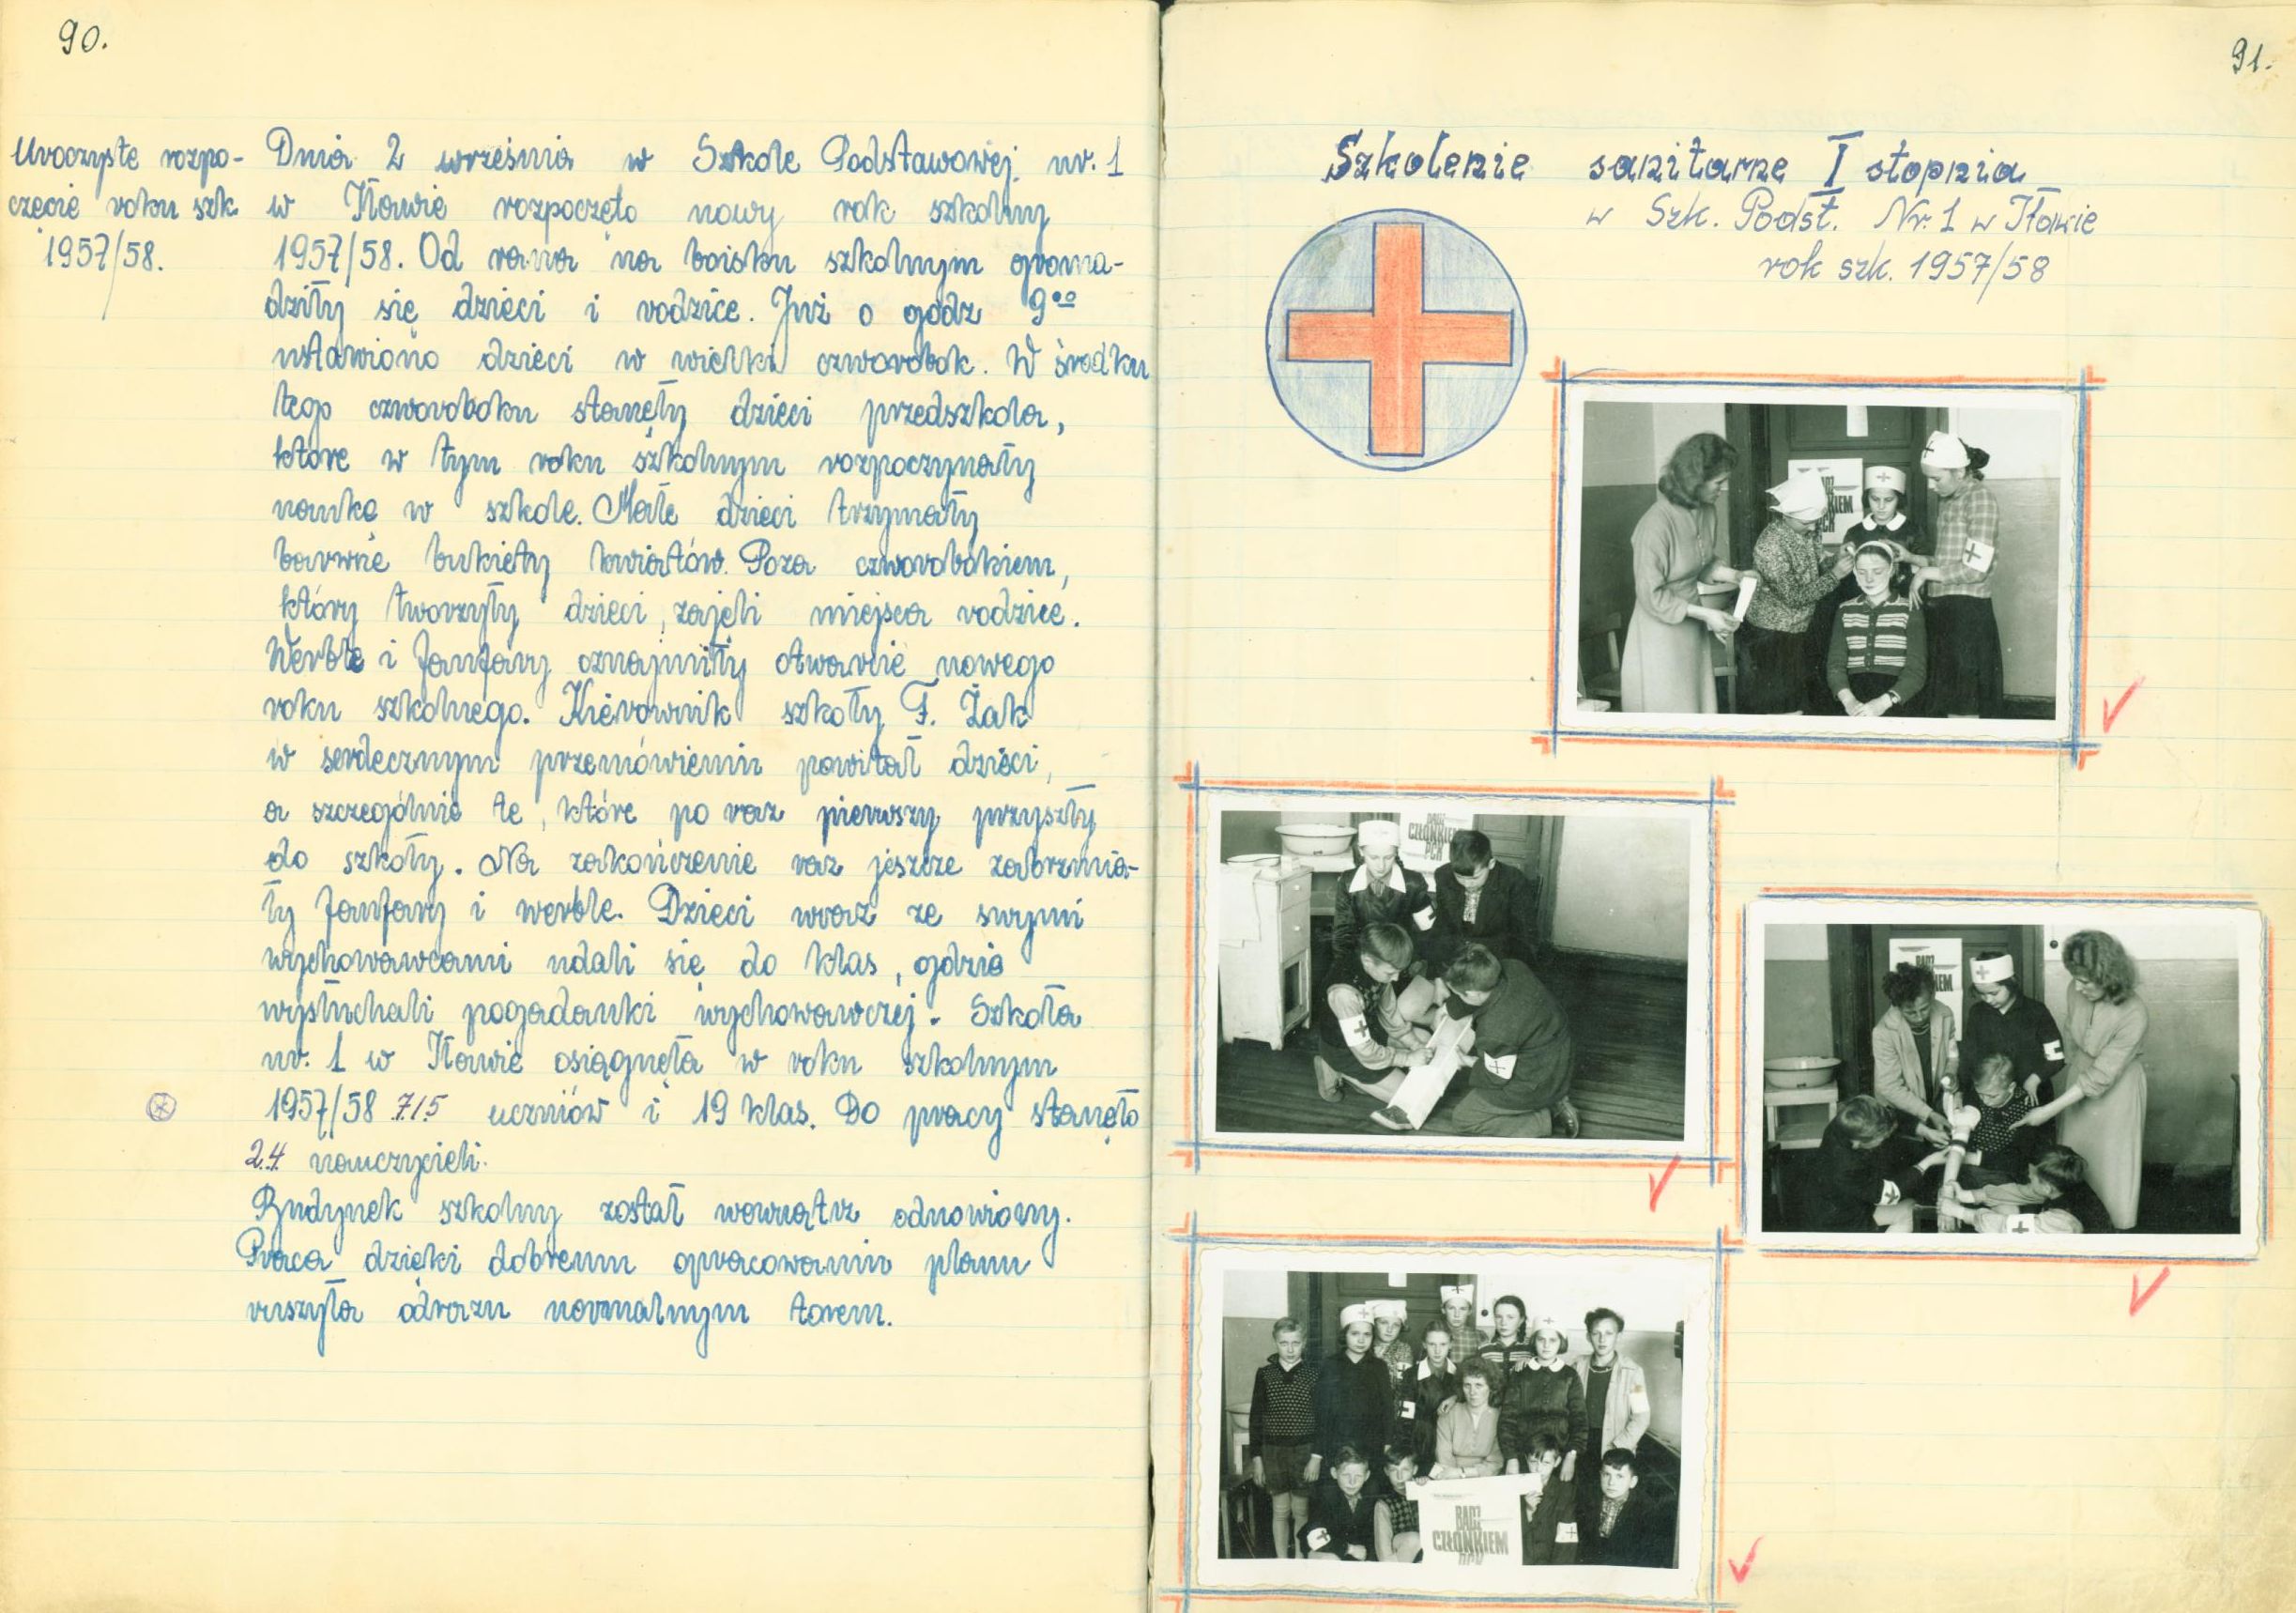 90.
Uroczyste rozpo-
częcie roku szk.
1957/58.
Dnia 2 września w Szkole Podstawowej nr. 1
w Iławie rozpoczęto nowy rok szkolny
1957/58. Od rana na boisku szkolnym groma-
dziły się dzieci i rodzice. Już o godz 9⁰⁰
ustawiono dzieci w wielki czworobok. W środku
tego czworoboku stanęły dzieci przedszkola,
które w tym roku szkolnym rozpoczynały
naukę w szkole. Małe dzieci trzymały
barwne bukiety kwiatów. Poza czworobokiem,
który tworzyły dzieci, zajęli miejsca rodzice.
Werble i fanfary oznajmiły otwarcie nowego
roku szkolnego. Kierownik szkoły F. Żak
w serdecznym przemówieniu powitał dzieci,
a szczególnie te, które po raz pierwszy przyszły
do szkoły. Na zakończenie raz jeszcze zabrzmia-
ły fanfary i werble. Dzieci wraz ze swymi
wychowawcami udali się do klas, gdzie
wysłuchali pogadanki wychowawczej. Szkoła
nr. 1 w Iławie osiągnęła w roku szkolnym
1957/58 715 uczniów i 19 klas. Do pracy stanęło
24 nauczycieli.
Budynek szkolny został wewnątrz odnowiony.
Praca dzięki dobremu opracowaniu planu
ruszyła odrazu normalnym torem.
91.
Szkolenie sanitarne I stopnia
w Szk. Podst. Nr. 1 w Iławie
rok szk. 1957/58
PCK
CZŁONKIEM
PCK
BĄDŹ
CZŁONKIEM
PCK